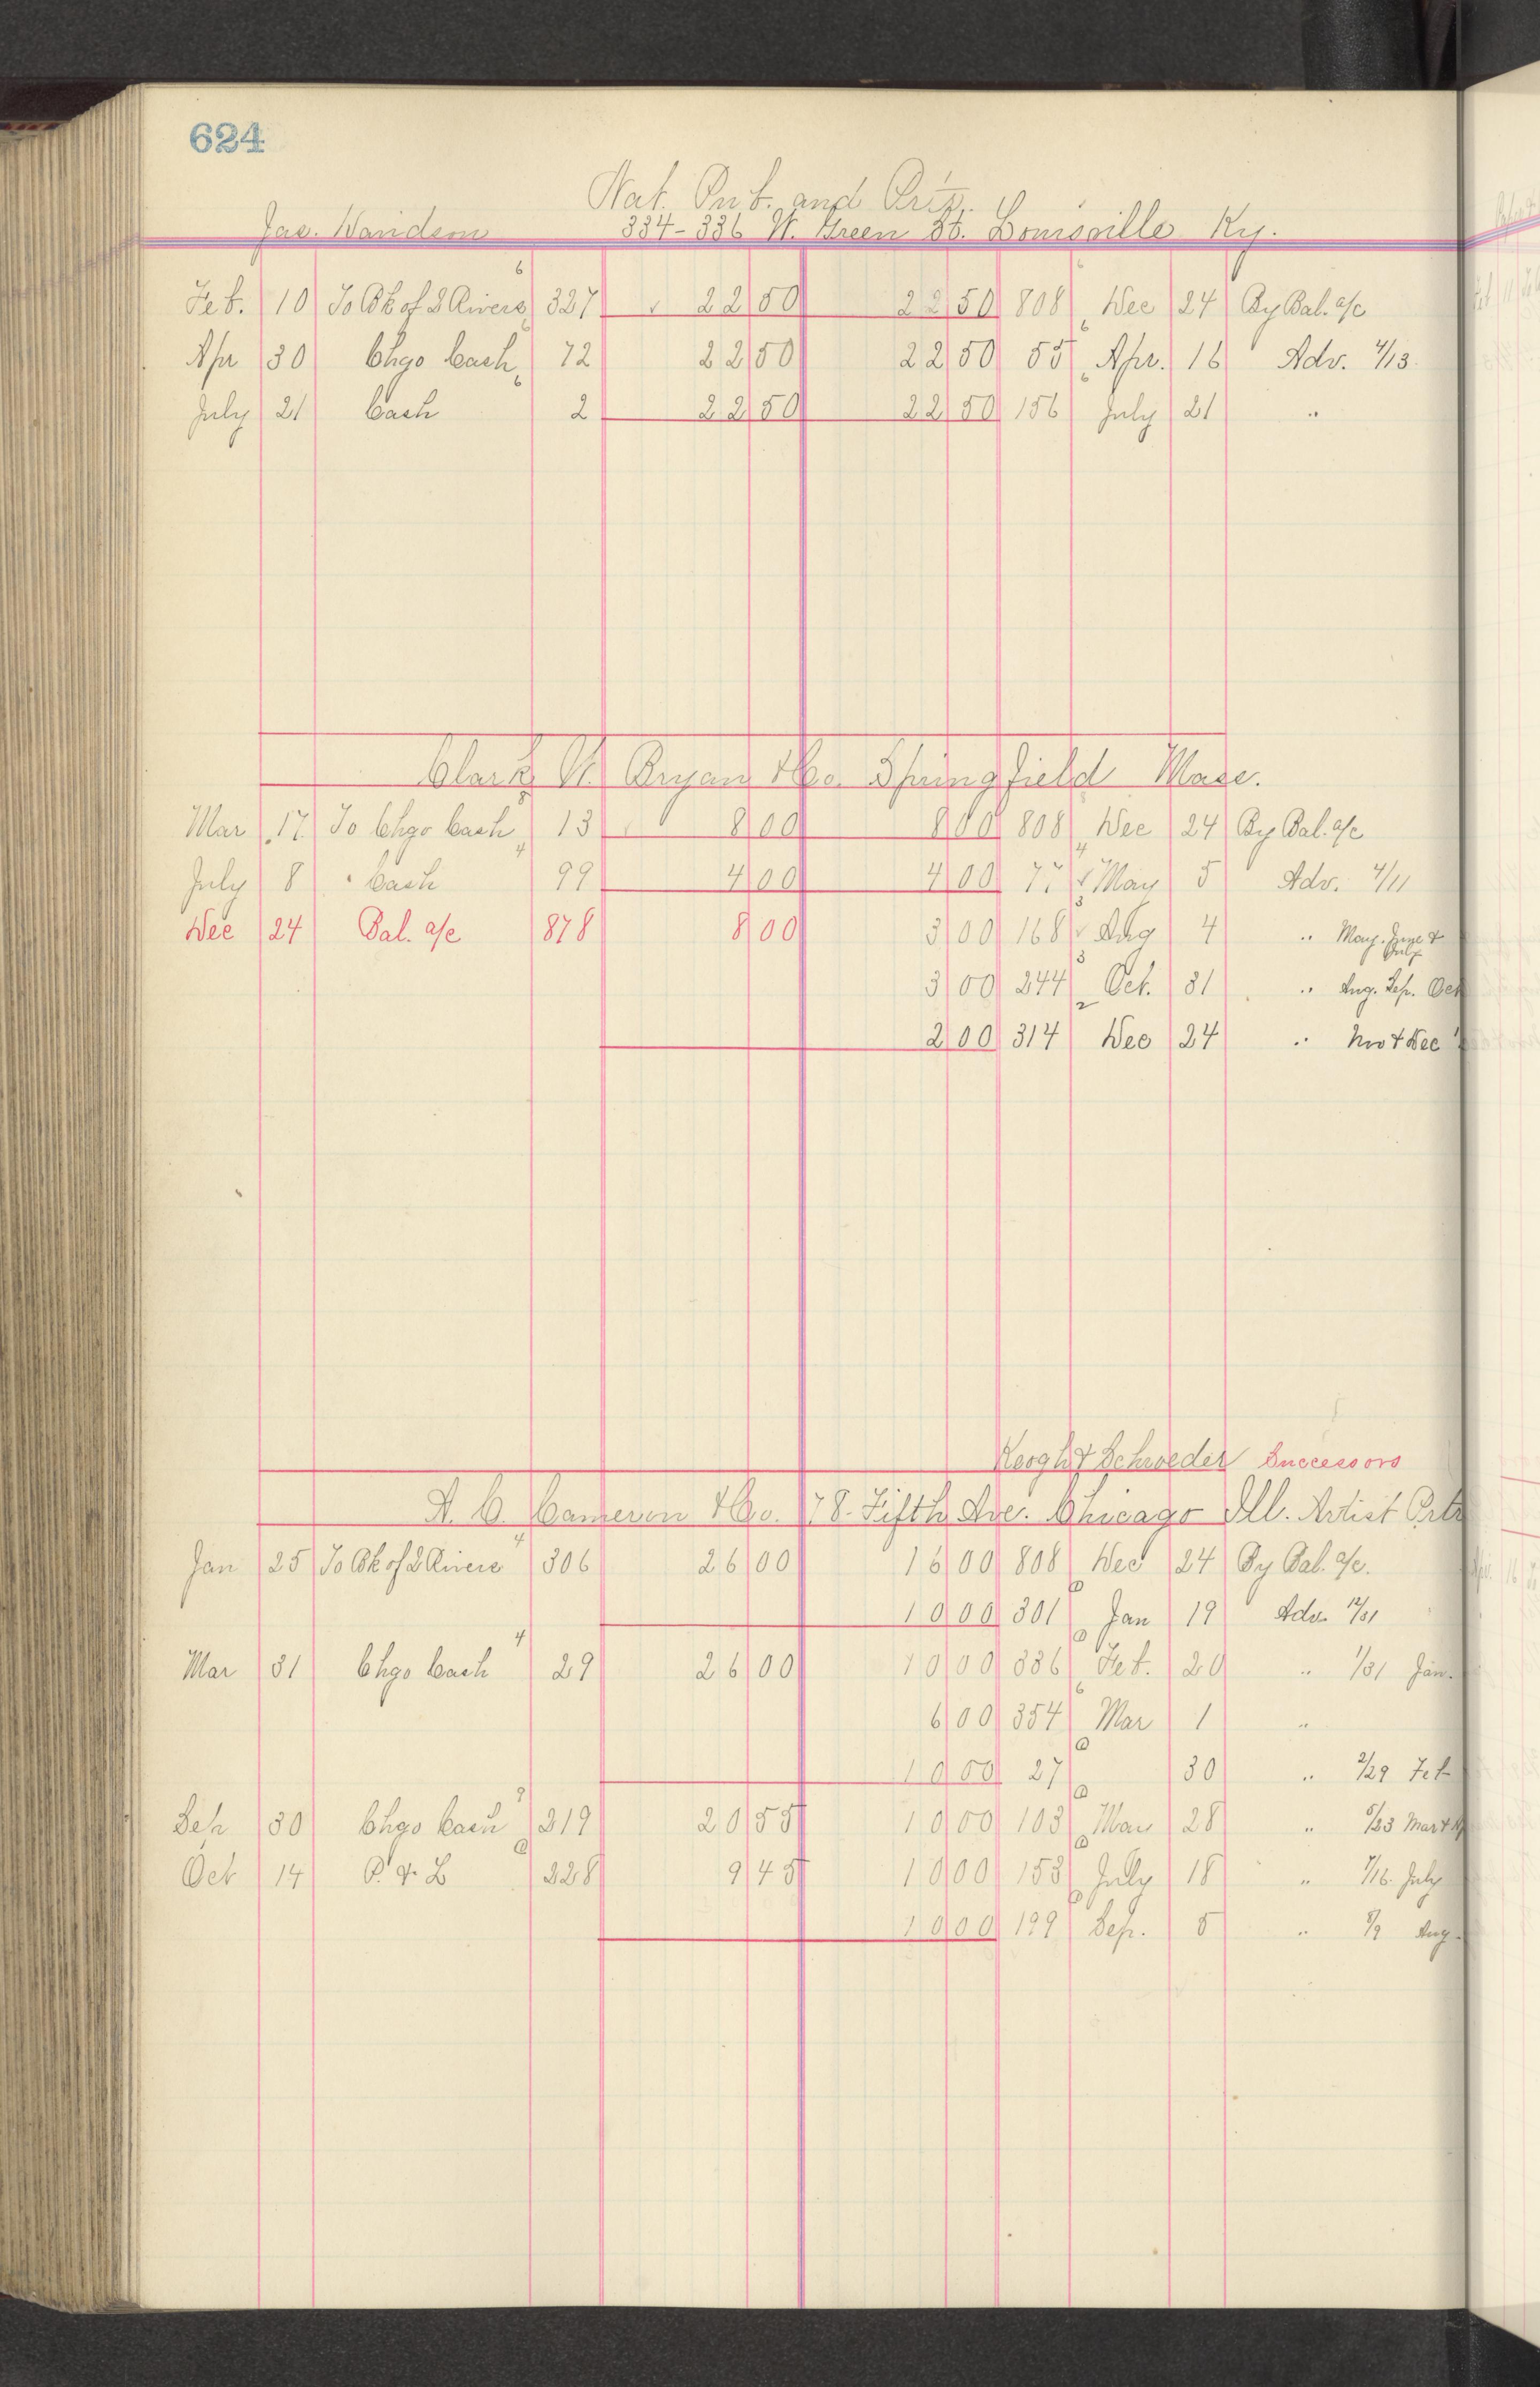 624
Nat. Pub. and Prtg.
Jas. Davidson 334-336 W. Green St. Louisville Ky.
Feb. 10 To Bk of 2 Rivers 6 327 22 50 22 50 808 Dec 24 By Bal. a/c
Apr 30 Chgo Cash 6 72 22 50 22 50 55 6 Apr. 16 Adv. 4/13
July 21 Cash 6 2 22 50 22 50 156 6 July 21 "
Clark W. Bryan & Co. Springfield Mass.
Mar 17 To Chgo Cash 13 8 00 8 00 808 Dec 24 By Bal. a/c
July 8 " Cash 4 99 4 00 4 00 77 4 May 5 Adv. 4/11
Dec 24 Bal. a/c 878 8 00 3 00 168 3 Aug 4 " May. June & July
3 00 244 3 Oct. 31 " Aug. Sep. Oct
2 00 314 2 Dec 24 " Nov & Dec
Keogh & Schroeder Successors
A. C. Cameron & Co. 178 Fifth Ave. Chicago Ill. Artist Prtr
Jan 25 To Bk of 2 Rivers 4 306 26 00 16 00 808 Dec 24 By Bal. a/c.
10 00 301 Jan 19 Adv. 12/31
Mar 31 Chgo Cash 4 29 26 00 10 00 336 Feb. 20 " 1/31 Jan.
6 00 354 6 Mar 1 "
10 00 27 30 " 2/29 Feb
Sep 30 Chgo Cash 9 219 20 55 10 00 103 May 28 " 5/23 Mar &
Oct 14 P. & L 228 9 45 10 00 153 July 18 " 7/16. July
10 00 199 Sep. 5 " 8/9 Aug.